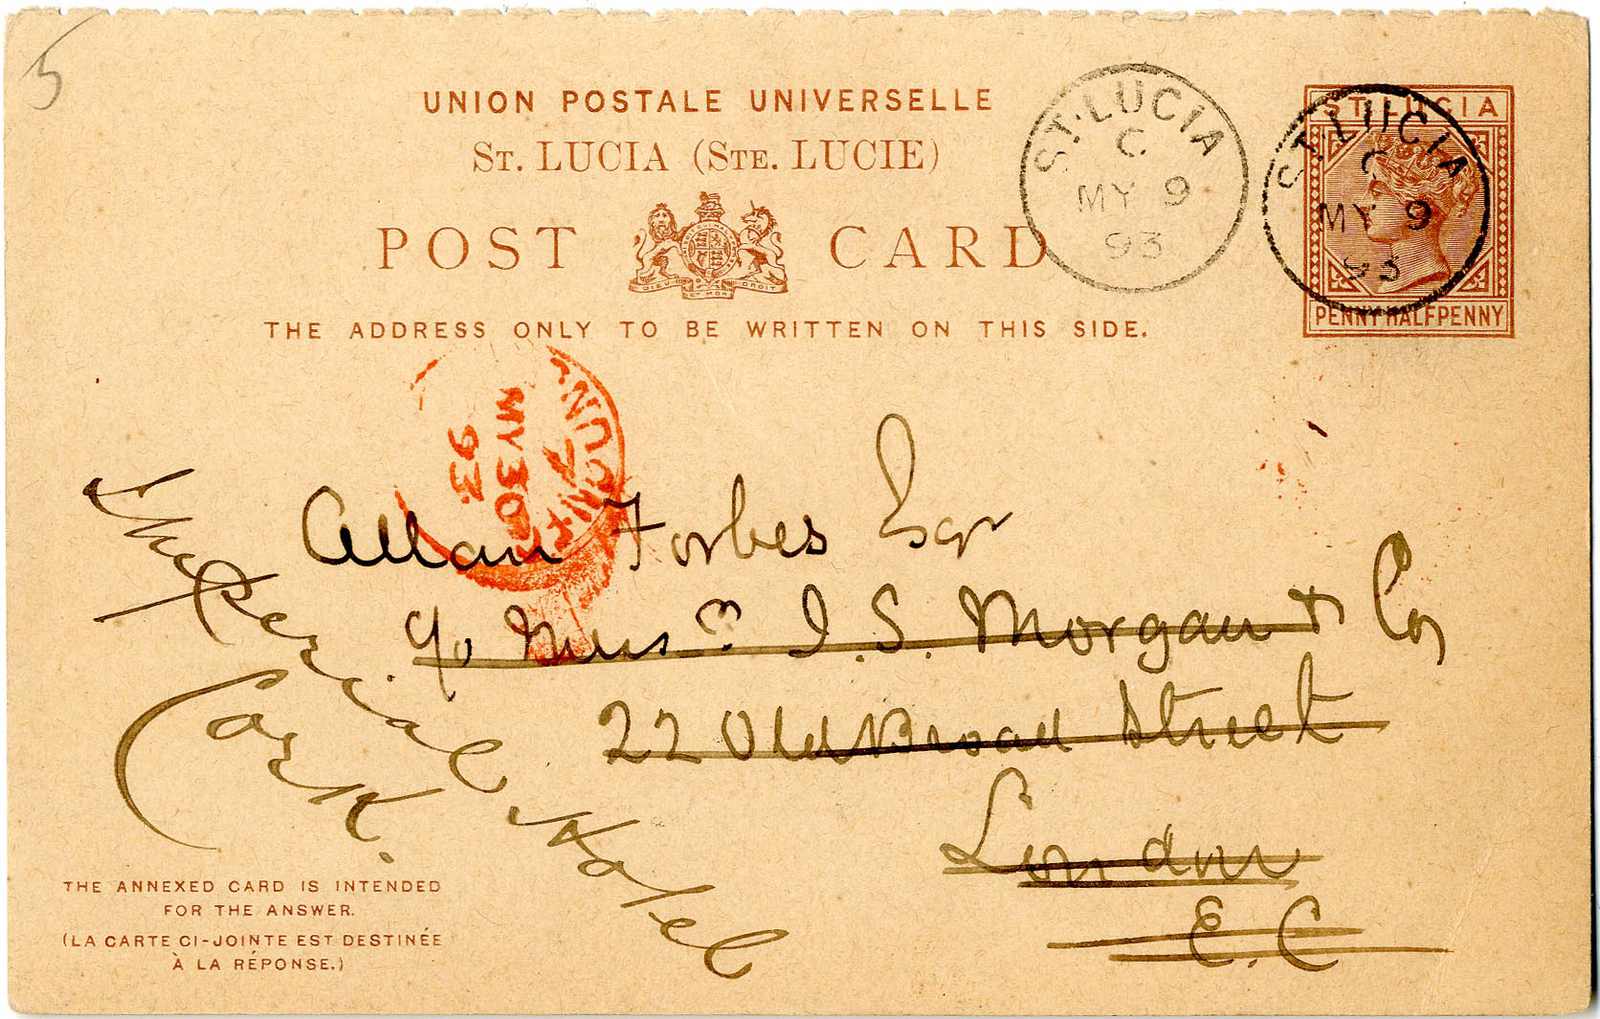 5
UNION POSTALE UNIVERSELLE
ST. LUCIA (STE. LUCIE)
POST CARD
DIEU ET MON DROIT
THE ADDRESS ONLY TO BE WRITTEN ON THIS SIDE.
ST. LUCIA
C
MY 9
93
ST. LUCIA
PENNY HALFPENNY
ST. LUCIA
C
MY 9
93
MY 30
93
Allan Forbes Esqr
c/o Messrs J. S. Morgan & Co
22 Old Broad Street
London
E. C
Imperial Hotel
Cork.
THE ANNEXED CARD IS INTENDED
FOR THE ANSWER.
(LA CARTE CI-JOINTE EST DESTINÉE
À LA RÉPONSE.)